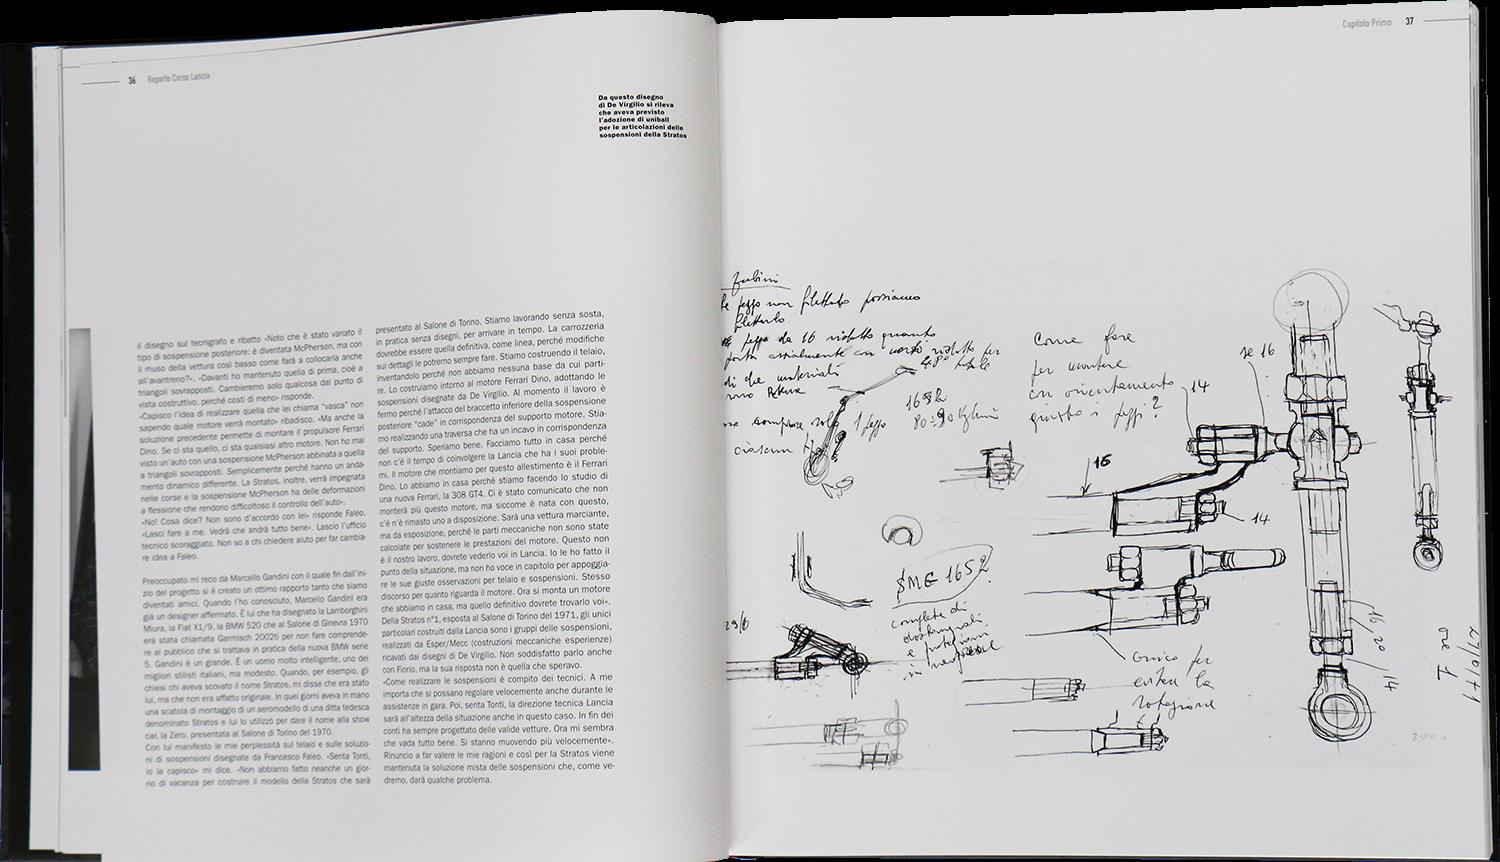 36 Reparto Corse Lancia
Da questo disegno
di De Virgilio si rileva
che aveva previsto
l'adozione di uniball
per le articolazioni delle
sospensioni della Stratos
il disegno sul tecnigrafo e ribatto «Noto che è stato variato il
tipo di sospensione posteriore: è diventata McPherson, ma con
il muso della vettura così basso come farà a collocarla anche
all'avantreno?». «Davanti ho mantenuto quella di prima, cioè a
triangoli sovrapposti. Cambieremo solo qualcosa dal punto di
vista costruttivo, perché costi di meno» risponde.
«Capisco l'idea di realizzare quella che lei chiama "vasca" non
sapendo quale motore verrà montato» ribadisco. «Ma anche la
soluzione precedente permette di montare il propulsore Ferrari
Dino. Se ci sta quello, ci sta qualsiasi altro motore. Non ho mai
visto un'auto con una sospensione McPherson abbinata a quella
a triangoli sovrapposti. Semplicemente perché hanno un anda-
mento dinamico differente. La Stratos, inoltre, verrà impegnata
nelle corse e la sospensione McPherson ha delle deformazioni
a flessione che rendono difficoltoso il controllo dell'auto».
«No! Cosa dice? Non sono d'accordo con lei» risponde Faleo.
«Lasci fare a me. Vedrà che andrà tutto bene». Lascio l'ufficio
tecnico scoraggiato. Non so a chi chiedere aiuto per far cambia-
re idea a Faleo.
Preoccupato mi reco da Marcello Gandini con il quale fin dall'ini-
zio del progetto si è creato un ottimo rapporto tanto che siamo
diventati amici. Quando l'ho conosciuto, Marcello Gandini era
già un designer affermato. È lui che ha disegnato la Lamborghini
Miura, la Fiat X1/9, la BMW 520 che al Salone di Ginevra 1970
era stata chiamata Garmisch 2002ti per non fare comprende-
re al pubblico che si trattava in pratica della nuova BMW serie
5. Gandini è un grande. È un uomo molto intelligente, uno dei
migliori stilisti italiani, ma modesto. Quando, per esempio, gli
chiesi chi aveva scovato il nome Stratos, mi disse che era stato
lui, ma che non era affatto originale. In quei giorni aveva in mano
una scatola di montaggio di un aeromodello di una ditta tedesca
denominato Stratos e lui lo utilizzò per dare il nome alla show
car, la Zero, presentata al Salone di Torino del 1970.
Con lui manifesto le mie perplessità sul telaio e sulle soluzio-
ni di sospensioni disegnate da Francesco Faleo. «Senta Tonti,
io la capisco» mi dice. «Non abbiamo fatto neanche un gior-
no di vacanza per costruire il modello della Stratos che sarà
presentato al Salone di Torino. Stiamo lavorando senza sosta,
in pratica senza disegni, per arrivare in tempo. La carrozzeria
dovrebbe essere quella definitiva, come linea, perché modifiche
sui dettagli le potremo sempre fare. Stiamo costruendo il telaio,
inventandolo perché non abbiamo nessuna base da cui parti-
re. Lo costruiamo intorno al motore Ferrari Dino, adottando le
sospensioni disegnate da De Virgilio. Al momento il lavoro è
fermo perché l'attacco del braccetto inferiore della sospensione
posteriore "cade" in corrispondenza del supporto motore. Stia-
mo realizzando una traversa che ha un incavo in corrispondenza
del supporto. Speriamo bene. Facciamo tutto in casa perché
non c'è il tempo di coinvolgere la Lancia che ha i suoi proble-
mi. Il motore che montiamo per questo allestimento è il Ferrari
Dino. Lo abbiamo in casa perché stiamo facendo lo studio di
una nuova Ferrari, la 308 GT4. Ci è stato comunicato che non
monterà più questo motore, ma siccome è nata con questo,
c'è n'è rimasto uno a disposizione. Sarà una vettura marciante,
ma da esposizione, perché le parti meccaniche non sono state
calcolate per sostenere le prestazioni del motore. Questo non
è il nostro lavoro, dovrete vederlo voi in Lancia. Io le ho fatto il
punto della situazione, ma non ho voce in capitolo per appoggia-
re le sue giuste osservazioni per telaio e sospensioni. Stesso
discorso per quanto riguarda il motore. Ora si monta un motore
che abbiamo in casa, ma quello definitivo dovrete trovarlo voi».
Della Stratos n°1, esposta al Salone di Torino del 1971, gli unici
particolari costruiti dalla Lancia sono i gruppi delle sospensioni,
realizzati da Esper/Mecc (costruzioni meccaniche esperienze)
ricavati dai disegni di De Virgilio. Non soddisfatto parlo anche
con Fiorio, ma la sua risposta non è quella che speravo.
«Come realizzare le sospensioni è compito dei tecnici. A me
importa che si possano regolare velocemente anche durante le
assistenze in gara. Poi, senta Tonti, la direzione tecnica Lancia
sarà all'altezza della situazione anche in questo caso. In fin dei
conti ha sempre progettato delle valide vetture. Ora mi sembra
che vada tutto bene. Si stanno muovendo più velocemente».
Rinuncio a far valere le mie ragioni e così per la Stratos viene
mantenuta la soluzione mista delle sospensioni che, come ve-
dremo, darà qualche problema.
Capitolo Primo 37
pezzo non filettato possiamo
filettarlo
pezzo da 16 ridotto quanto
assialmente con
di che materiali
1 pezzo
Come fare
per montare
con orientamento
giusto i pezzi?
se 16
14
16
14
SMG 1652
complete di
29/6
Unico per
evitare la
rotazione
16
20
14
ore 1
2000